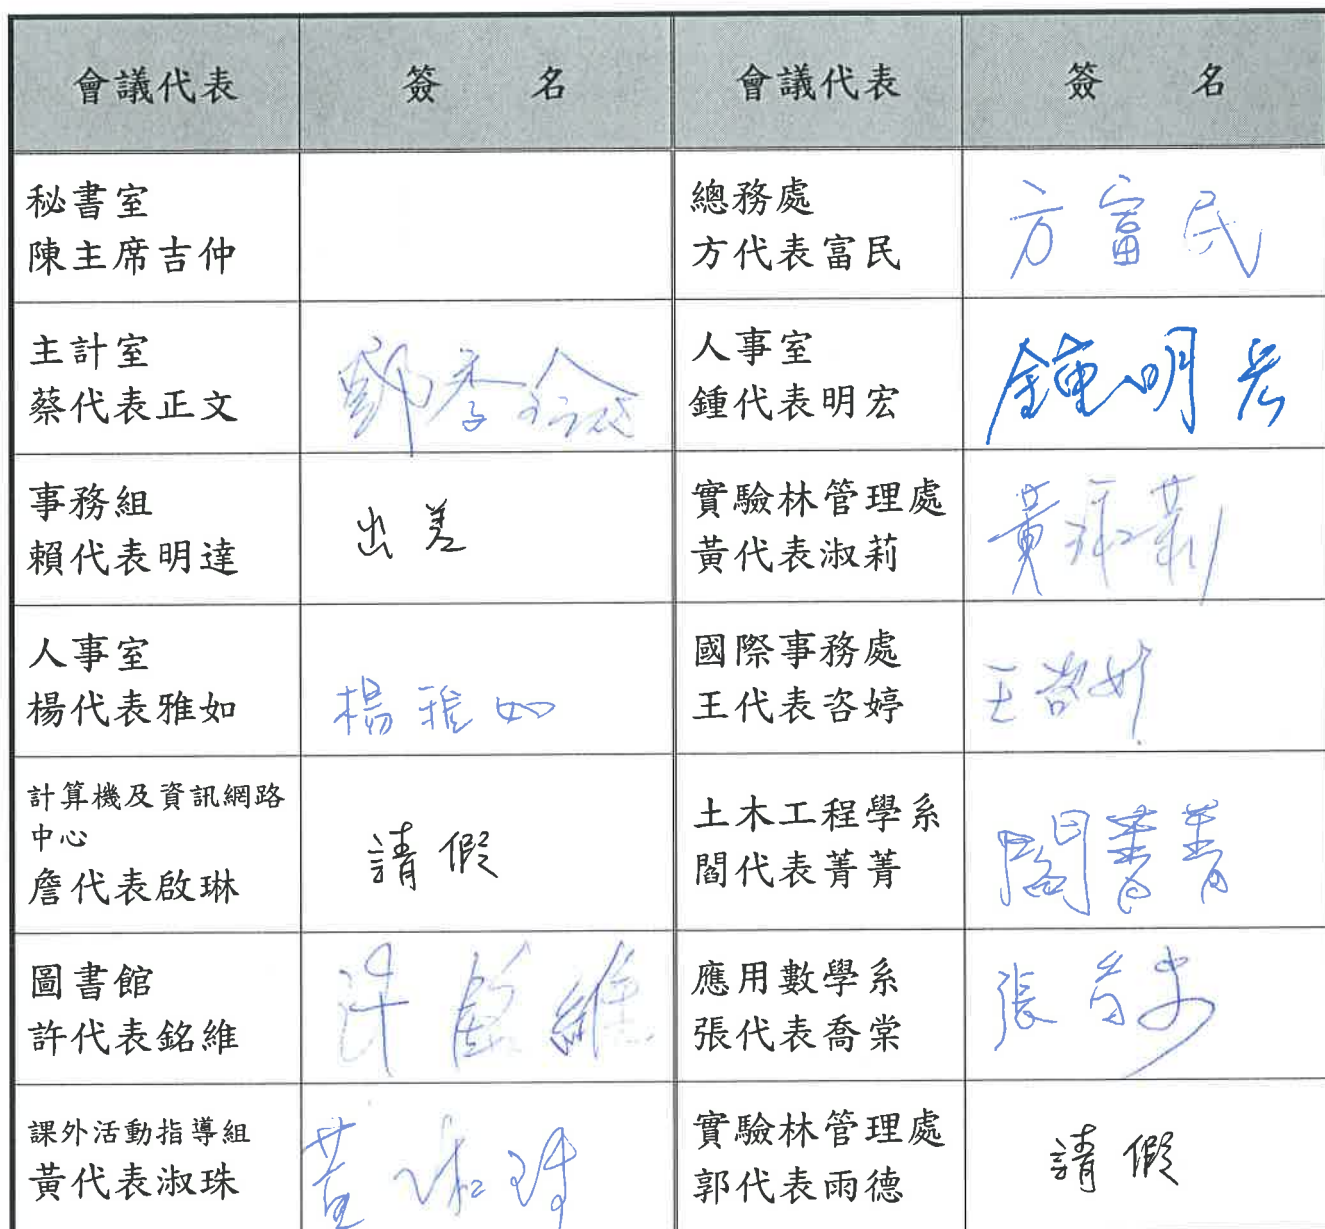 會議代表 簽 名 會議代表 簽 名
秘書室
陳主席吉仲
總務處
方代表富民
方富民
主計室
蔡代表正文
人事室
鍾代表明宏
鍾明宏
事務組
賴代表明達
出差
實驗林管理處
黃代表淑莉
黃淑莉
人事室
楊代表雅如
楊雅如
國際事務處
王代表咨婷
王咨婷
計算機及資訊網路
中心
詹代表啟琳
請假
土木工程學系
閻代表菁菁
閻菁菁
圖書館
許代表銘維
許銘維
應用數學系
張代表喬棠
張喬棠
課外活動指導組
黃代表淑珠
黃淑珠
實驗林管理處
郭代表雨德
請假